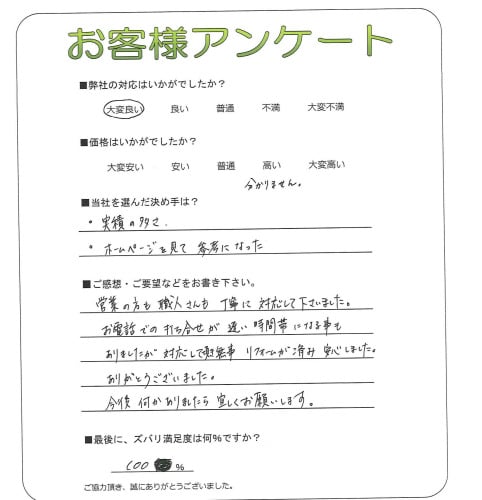 お客様アンケート
■弊社の対応はいかがでしたか？
大変良い 良い 普通 不満 大変不満
■価格はいかがでしたか？
大変安い 安い 普通 高い 大変高い
分かりません。
■当社を選んだ決め手は？
・実績の多さ.
・ホームページを見て 参考になった
■ご感想・ご要望などをお書き下さい。
営業の方も 職人さんも 丁寧に 対応して下さいました。
お電話での 打ち合せが 遅い 時間帯になる事も
ありましたが 対応して頂き無事 リフォームが済み 安心しました。
ありがとうございました。
今後 何かありましたら 宜しくお願いします。
■最後に、ズバリ満足度は何%ですか？
100 %
ご協力頂き、誠にありがとうございました。